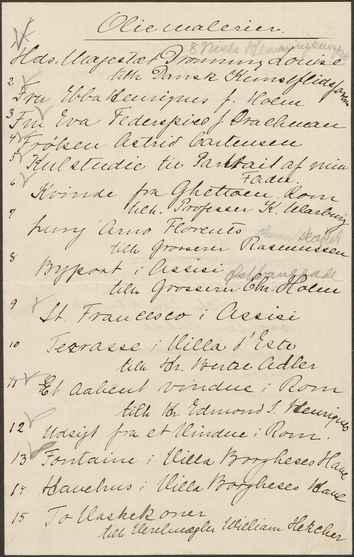 Oliemalerier.
Hds. Majestæt Dronning Louise
tilh. Dansk Kunstflidsforen
2 Fru Ebba Henriques f. Holm
3 Fru Eva Federspiel f. Drachman
4 Frøken Astrid Carstensen
5 Kulstudie til Portrait af min
Fader.
6 Kvinde fra Ghettoen Rom
tilh. Professer K. Warburg
7 Lung' Arno Florents
tilh Grosserer Rasmussen
8 Byport i Assisi
tilh Grosserer Chr. Holm
9 St. Francesco i Assisi
10 Terrasse i Villa d'Este
tilh Hr. Adler
11 Et aabent vindue i Rom
tilh Hr Edmond S. Henriques
12 Udsigt fra et Vindue i Rom.
13 Fontaine i Villa Borgheses Have
14 Havehus i Villa Borgheses Have
15 To Vaskekoner
tilh Vexelmægler William Heilcher